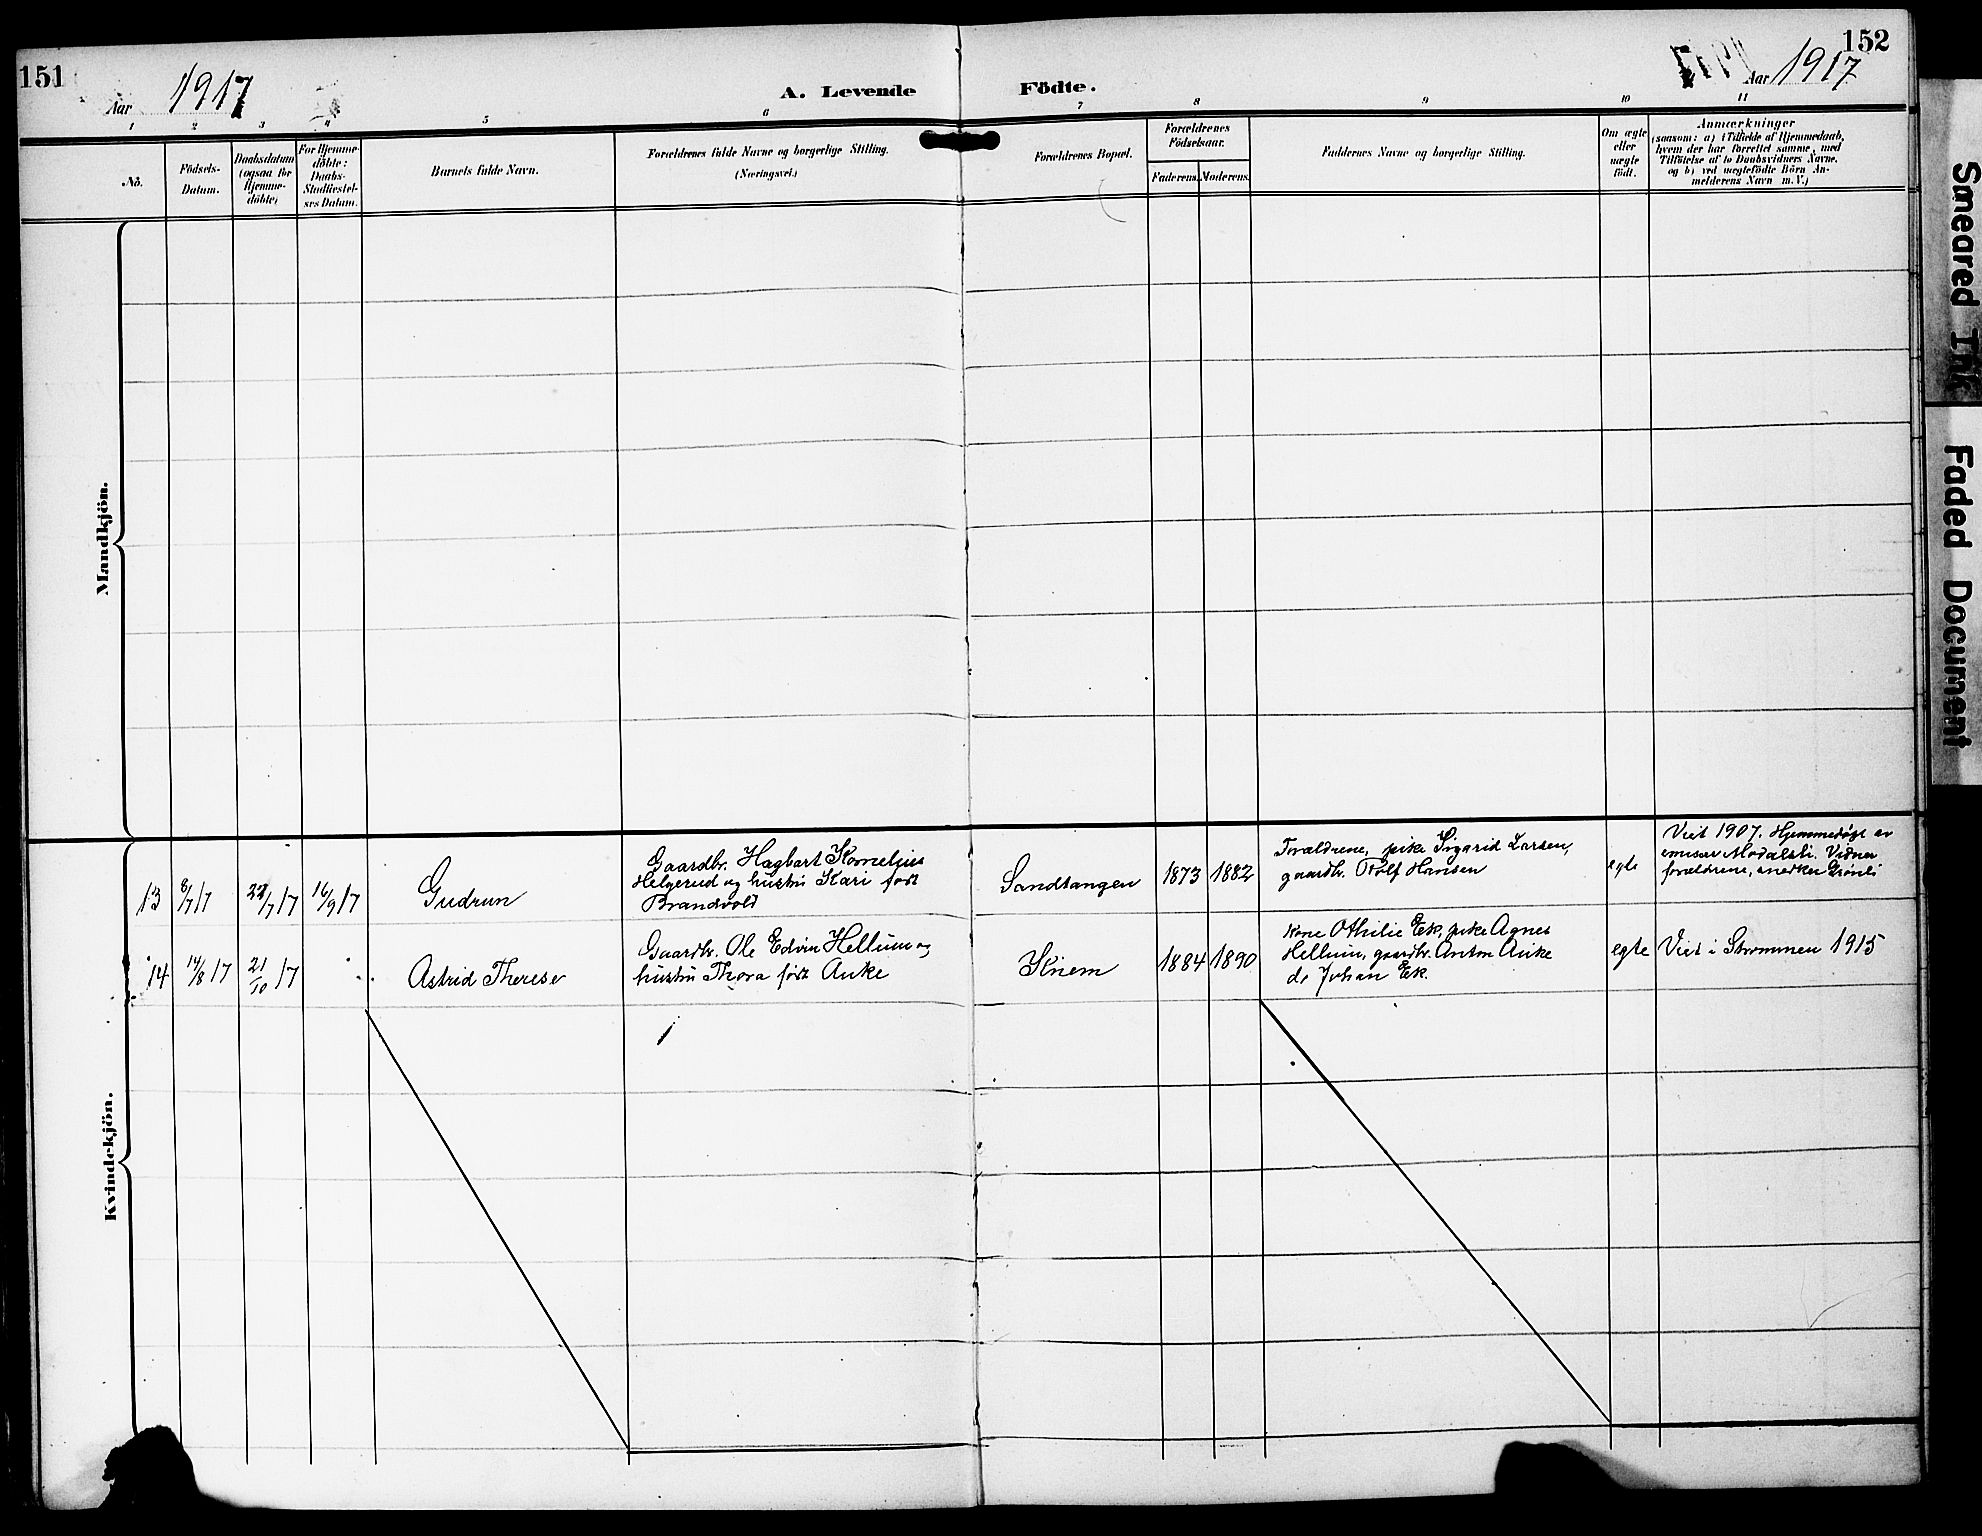 151
Aar 1917
A. Levende Födte.
152
Aar 1917
1 2 3 4 5 6 7 8 9 10 11
No.
Födsels-
Datum.
Daabsdatum
(ogsaa for
Hjemme-
döbte)
For Hjemme-
döbte:
Daabs-
Stadfæstel-
ses Datum.
Barnets fulde Navn.
Forældrenes fulde Navne og borgerlige Stilling.
(Næringsvei.)
Forældrenes Bopæl.
Forældrenes
Födselsaar.
Faderens. Moderens.
Faddernes Navne og borgerlige Stilling.
Om ægte
eller
uægte
födt.
Anmærkninger
(saasom: a) i Tilfælde af Hjemmedaab,
hvem der har forrettet samme, med
Tilföielse af to Daabsvidners Navne,
og b) ved uægtefödte Börn An-
melderens Navn m. V.)
Mandkjön.
Kvindekjön.
13
8/7 17
22/7 17
16/9 17
Gudrun
Gaardbr. Hagbart Kornelius
Helgerud og hustru Kari født
Brandvold
Sandtangen
1873
1882
Forældrene, pike Sigrid Larsen,
gaardbr. Rolf Hansen
egte
Viet 1907. Hjemmedøpt av
emissær Modalsli. Vidner
forældrene, snedker Grønli
14
14/8 17
21/10 17
Astrid Therese
Gaardbr. Ole Edvin Hellum og
hustru Thora født Auke
Knem
1884
1890
Kone Othilie Ek, pike Agnes
Hellum, gaardbr. Anton Auke
do Johan Ek.
egte
Viet i Strømmen 1915
Smeared Ink
Faded Document